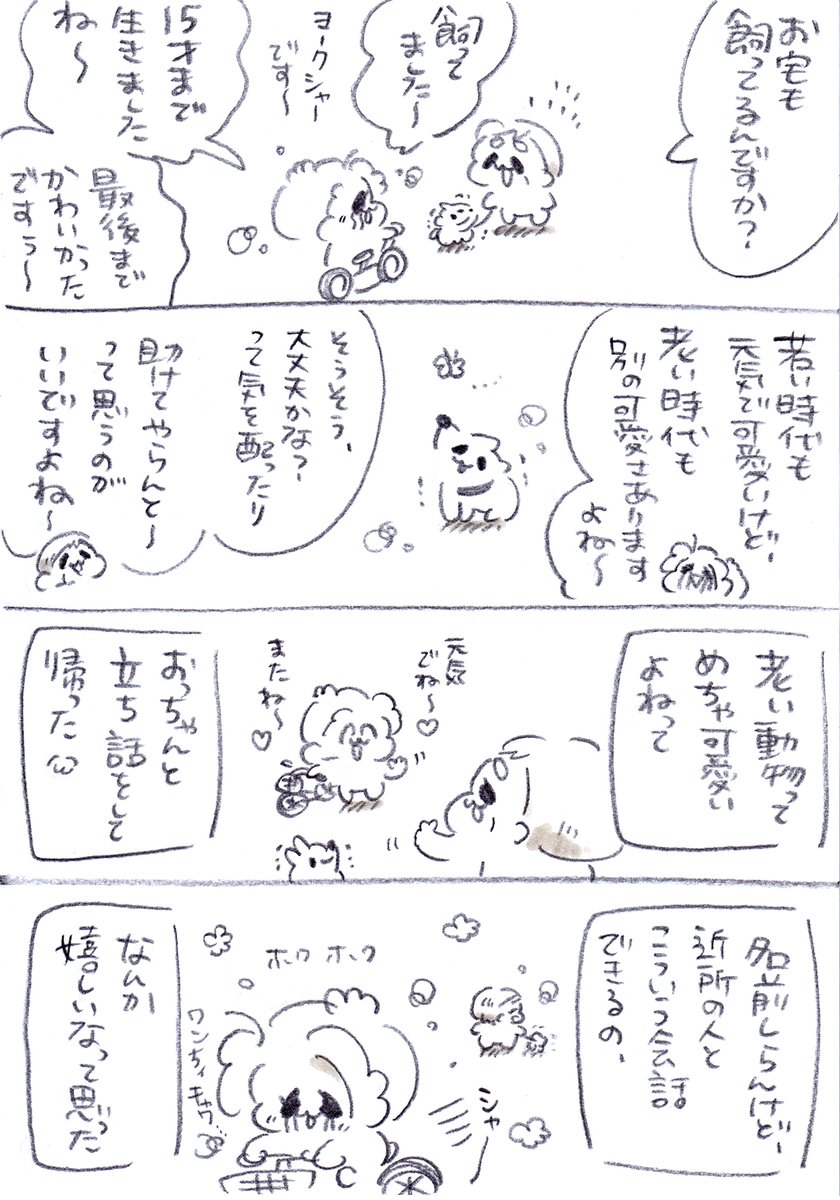 お宅も
飼ってるんですか?
飼って
ました〜
ヨークシャー
です〜
15才まで
生きました
ね〜
最後まで
かわいかった
ですぅ〜
若い時代も
元気で可愛いけど、
老い時代も
別の可愛さあります
よね〜
そうそう、
大丈夫かな?
って気を配ったり
助けてやらんと〜
って思うのが
いいですよね〜
老い動物って
めちゃ可愛い
よねって
元気
でね〜♡
またね〜♡
おっちゃんと
立ち話をして
帰った
名前しらんけど、
近所の人と
こういう会話
できるの、
ホワホワ
シャー
ワンちゃ
なんか
嬉しいなって思った